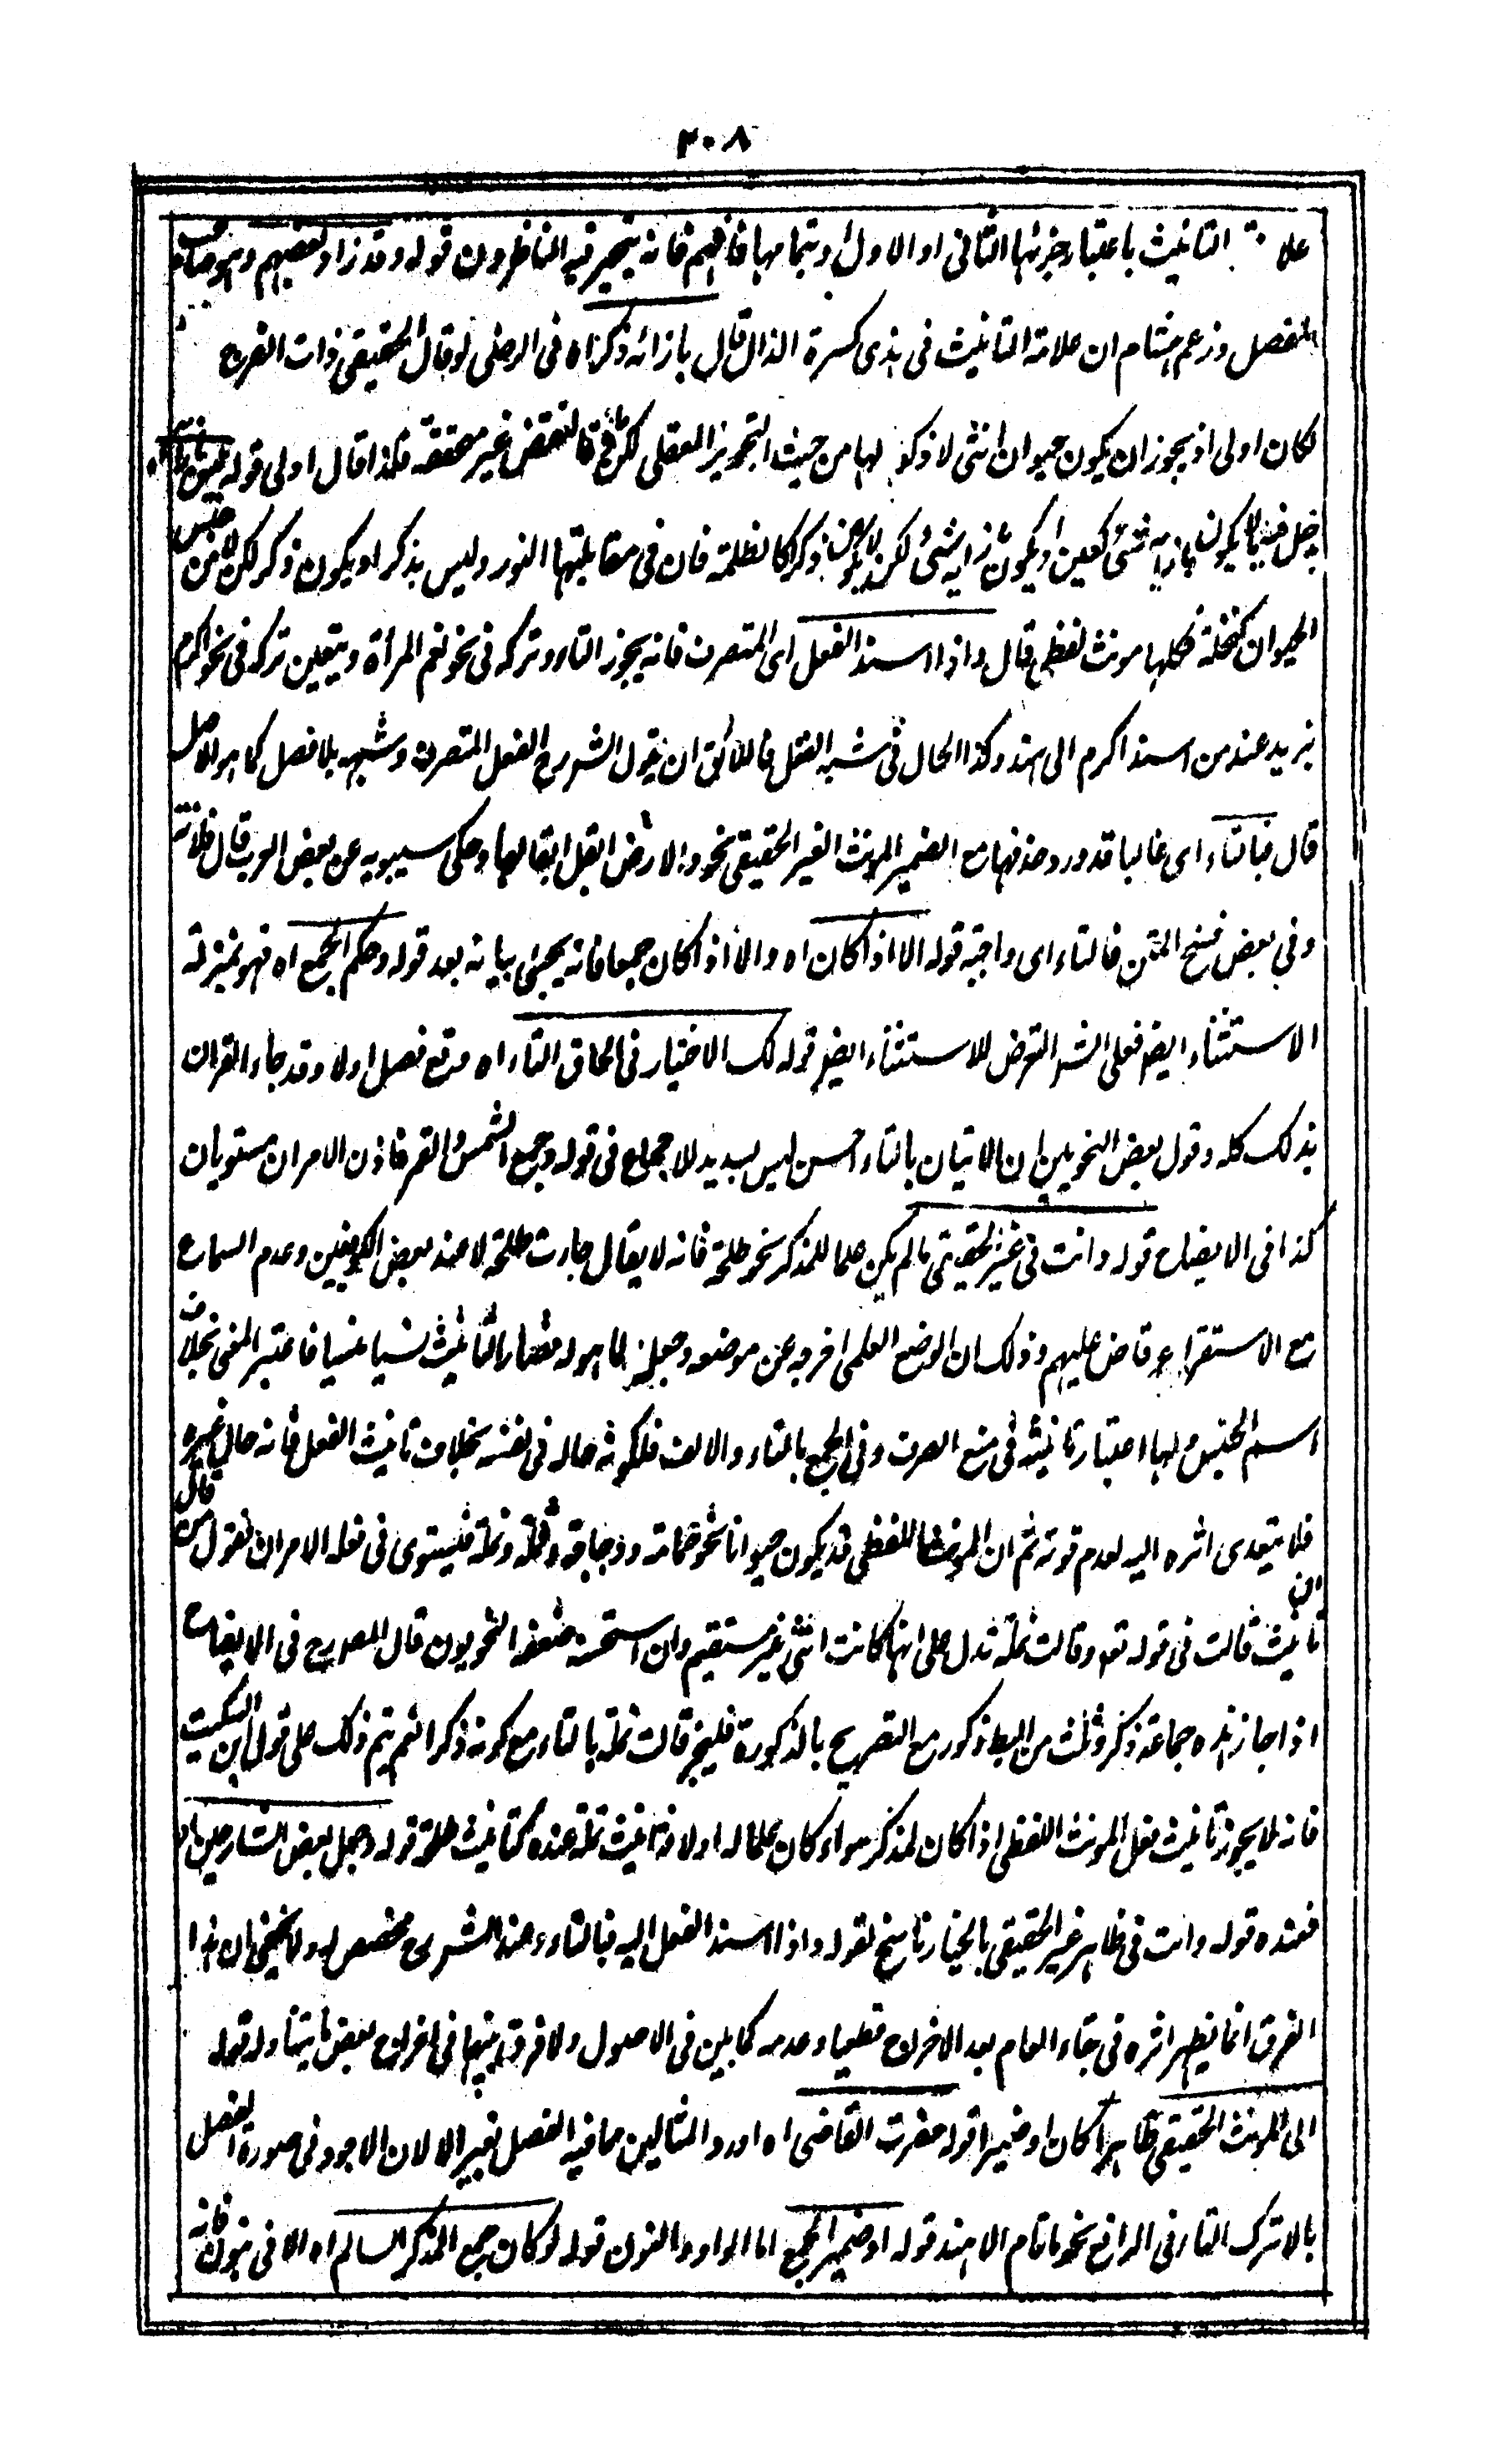 ٢٠٨
علامة التانيث باعتبار جزئها الثانى او الاول او بتمامها فافهم فانه يتحير فيه الناظرون قوله وقد زاد بعضهم وهو صاحب
المفصل وزعم هشام ان علامة التانيث فى هذى كسرة الذال قال بازائه ذكر اه فى الرضى لو قال الحقيقى ذات الفرج
لكان اولى اذ يجوز ان يكون حيوان انثى لا ذكر لها من حيث التجويز العقلى لكن فالنقض غير محققة فلذا قال اولى قوله
يدخل فيه ما لا يكون بازائه شئ كعين او يكون بازائه شئ لكن لا يكون ذكرا كالظلمة فان فى مقابلتها النور وليس بذكر او يكون ذكر لكن لا من جنس
الحيوان كنخلة فكلها مونث لفظى قال واذا اسند الفعل اى المتصرف فانه يجوز التاء وتركه فى نحو نعم المرأة ويتعين تركه فى نحو اكرم
بزيد عند من اسند اكرم الى هند وكذا الحال فى شبه الفعل فاللائق ان يقول الشرح الفعل المتصرف وشبهه بلا فصل كما هو الاصل
قال فبالتاء اى غالبا قد ورد حذفها مع الضمير المونث الغير الحقيقى نحو والارض ابقل ابقالها وحكى سيبويه عن بعض العرب قال فلانة
وفى بعض نسخ المتن فالتاء اى واجبة قوله الا اذا كان اه والا اذا كان جمعا فانه يجئ بيانه بعد قوله وحكم الجمع اه فهو بمنزلة
الاستثناء ايضا فعلى الشر التعرض للاستثناء ايضا قوله لك الاختيار فى الحاق التاء اه وقع فصل اولا وقد جاء القران
بذلك كله وقول بعض النحويين ان الاتيان بالتاء احسن ليس بسديد لاجماع فى قوله وجمع الشمس والقمر فاذن الامران مستويان
كذا فى الايضاح قوله وانت فى غير الحقيقى ما لم يكن علما للمذكر نحو طلحة فانه لا يقال جاءت طلحة لا عند بعض الكوفيين وعدم السماع
مع الاستقراء قاض عليهم وذلك ان الوضع العلمى اخرجه عن موضعه وجعله لما هو له فصار التانيث نسيا منسيا فاعتبر المعنى بخلاف
اسم الجنس ولها اعتبار تانيثه فى منع الصرف وفى الجمع بالتاء والالف فلكونه حاله فى نفسه بخلاف تانيث الفعل فانه حال غيره
فلا يتعدى اثره اليه لعدم قوته ثم ان المونث اللفظى قد يكون حيوانا نحو حمامة ودجاجة ونملة فيستوى فى فعله الامران فقول من قال ان
تانيث قالت فى قوله تعه وقالت نملة تدل على انها كانت انثى غير مستقيم وان استحسنه ضعفة النحويون قال المص رح فى الايضاح
اذ اجاز هذه جماعة ذكر وثلث من البط ذكور مع التصريح بالذكورة فليجز قالت نملة بالتاء مع كونه ذكرا ثم يتم ذلك على قول ابن السكيت
فانه لا يجوز تانيث فعل المونث اللفظى اذا كان لمذكر سواء كان علما له اولا فتانيث نملة عنده كتانيث طلحة قوله وجعل بعض الشارحين
فعنده قوله وانت فى ظاهر غير الحقيقى بالخيار ناسخ لقوله واذا اسند الفعل اليه فبالتاء وعند الشر رح مخصص له ولا يخفى ان هذا
الفرق انما يظهر اثره فى بقاء العام بعد الاخراج قطعيا وعدمه كما بين فى الاصول ولا فرق بينهما فى اخراج بعض ما يتناوله قوله
الى المونث الحقيقى ظاهرا كان او ضميرا قوله حضرت القاضى اه اورد المثالين مما فيه الفصل بغير الا لان الاجود فى صورة الفصل
بالا ترك التاء فى الرافع نحو ما قام الا هند قوله او ضمير الجمع اما الواو والنون قوله لو كان جمع المذكر السالم اه الا فى بنون فانه